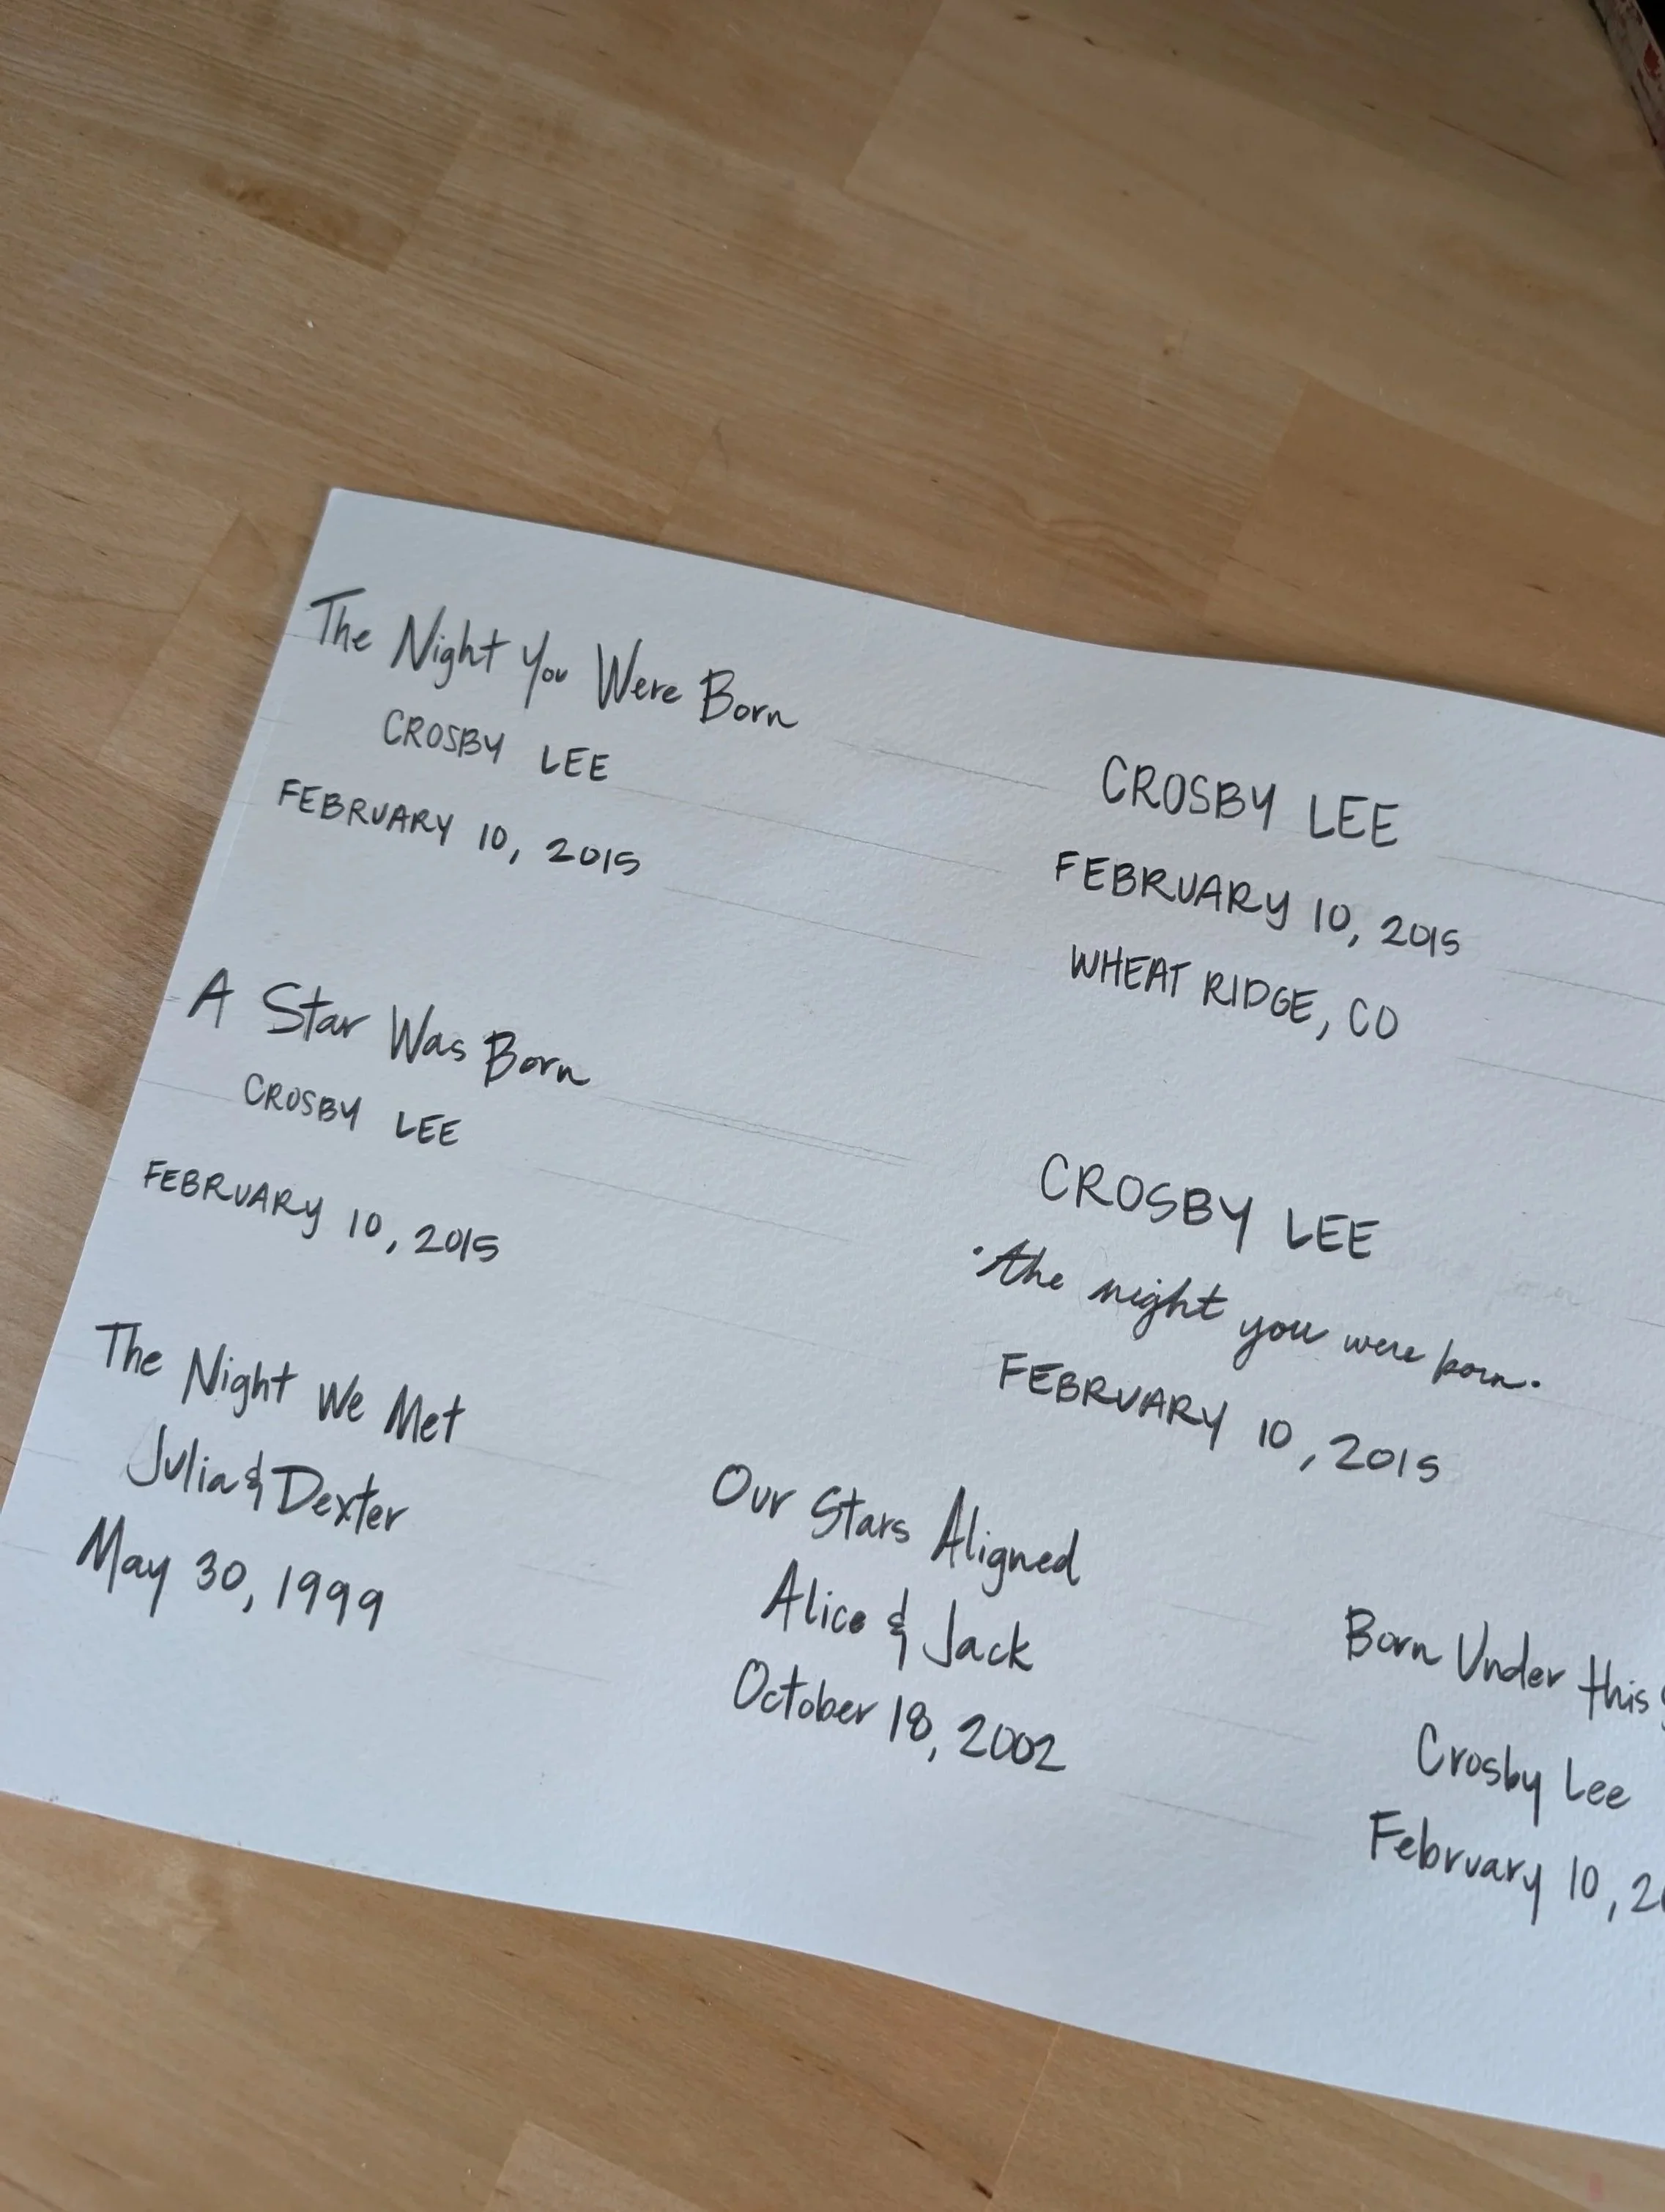 The Night You Were Born
CROSBY LEE
FEBRUARY 10, 2015
CROSBY LEE
FEBRUARY 10, 2015
WHEAT RIDGE, CO
A Star Was Born
CROSBY LEE
FEBRUARY 10, 2015
CROSBY LEE
·the night you were born·
FEBRUARY 10, 2015
The Night We Met
Julia & Dexter
May 30, 1999
Our Stars Aligned
Alice & Jack
October 18, 2002
Born Under this
Crosby Lee
February 10,